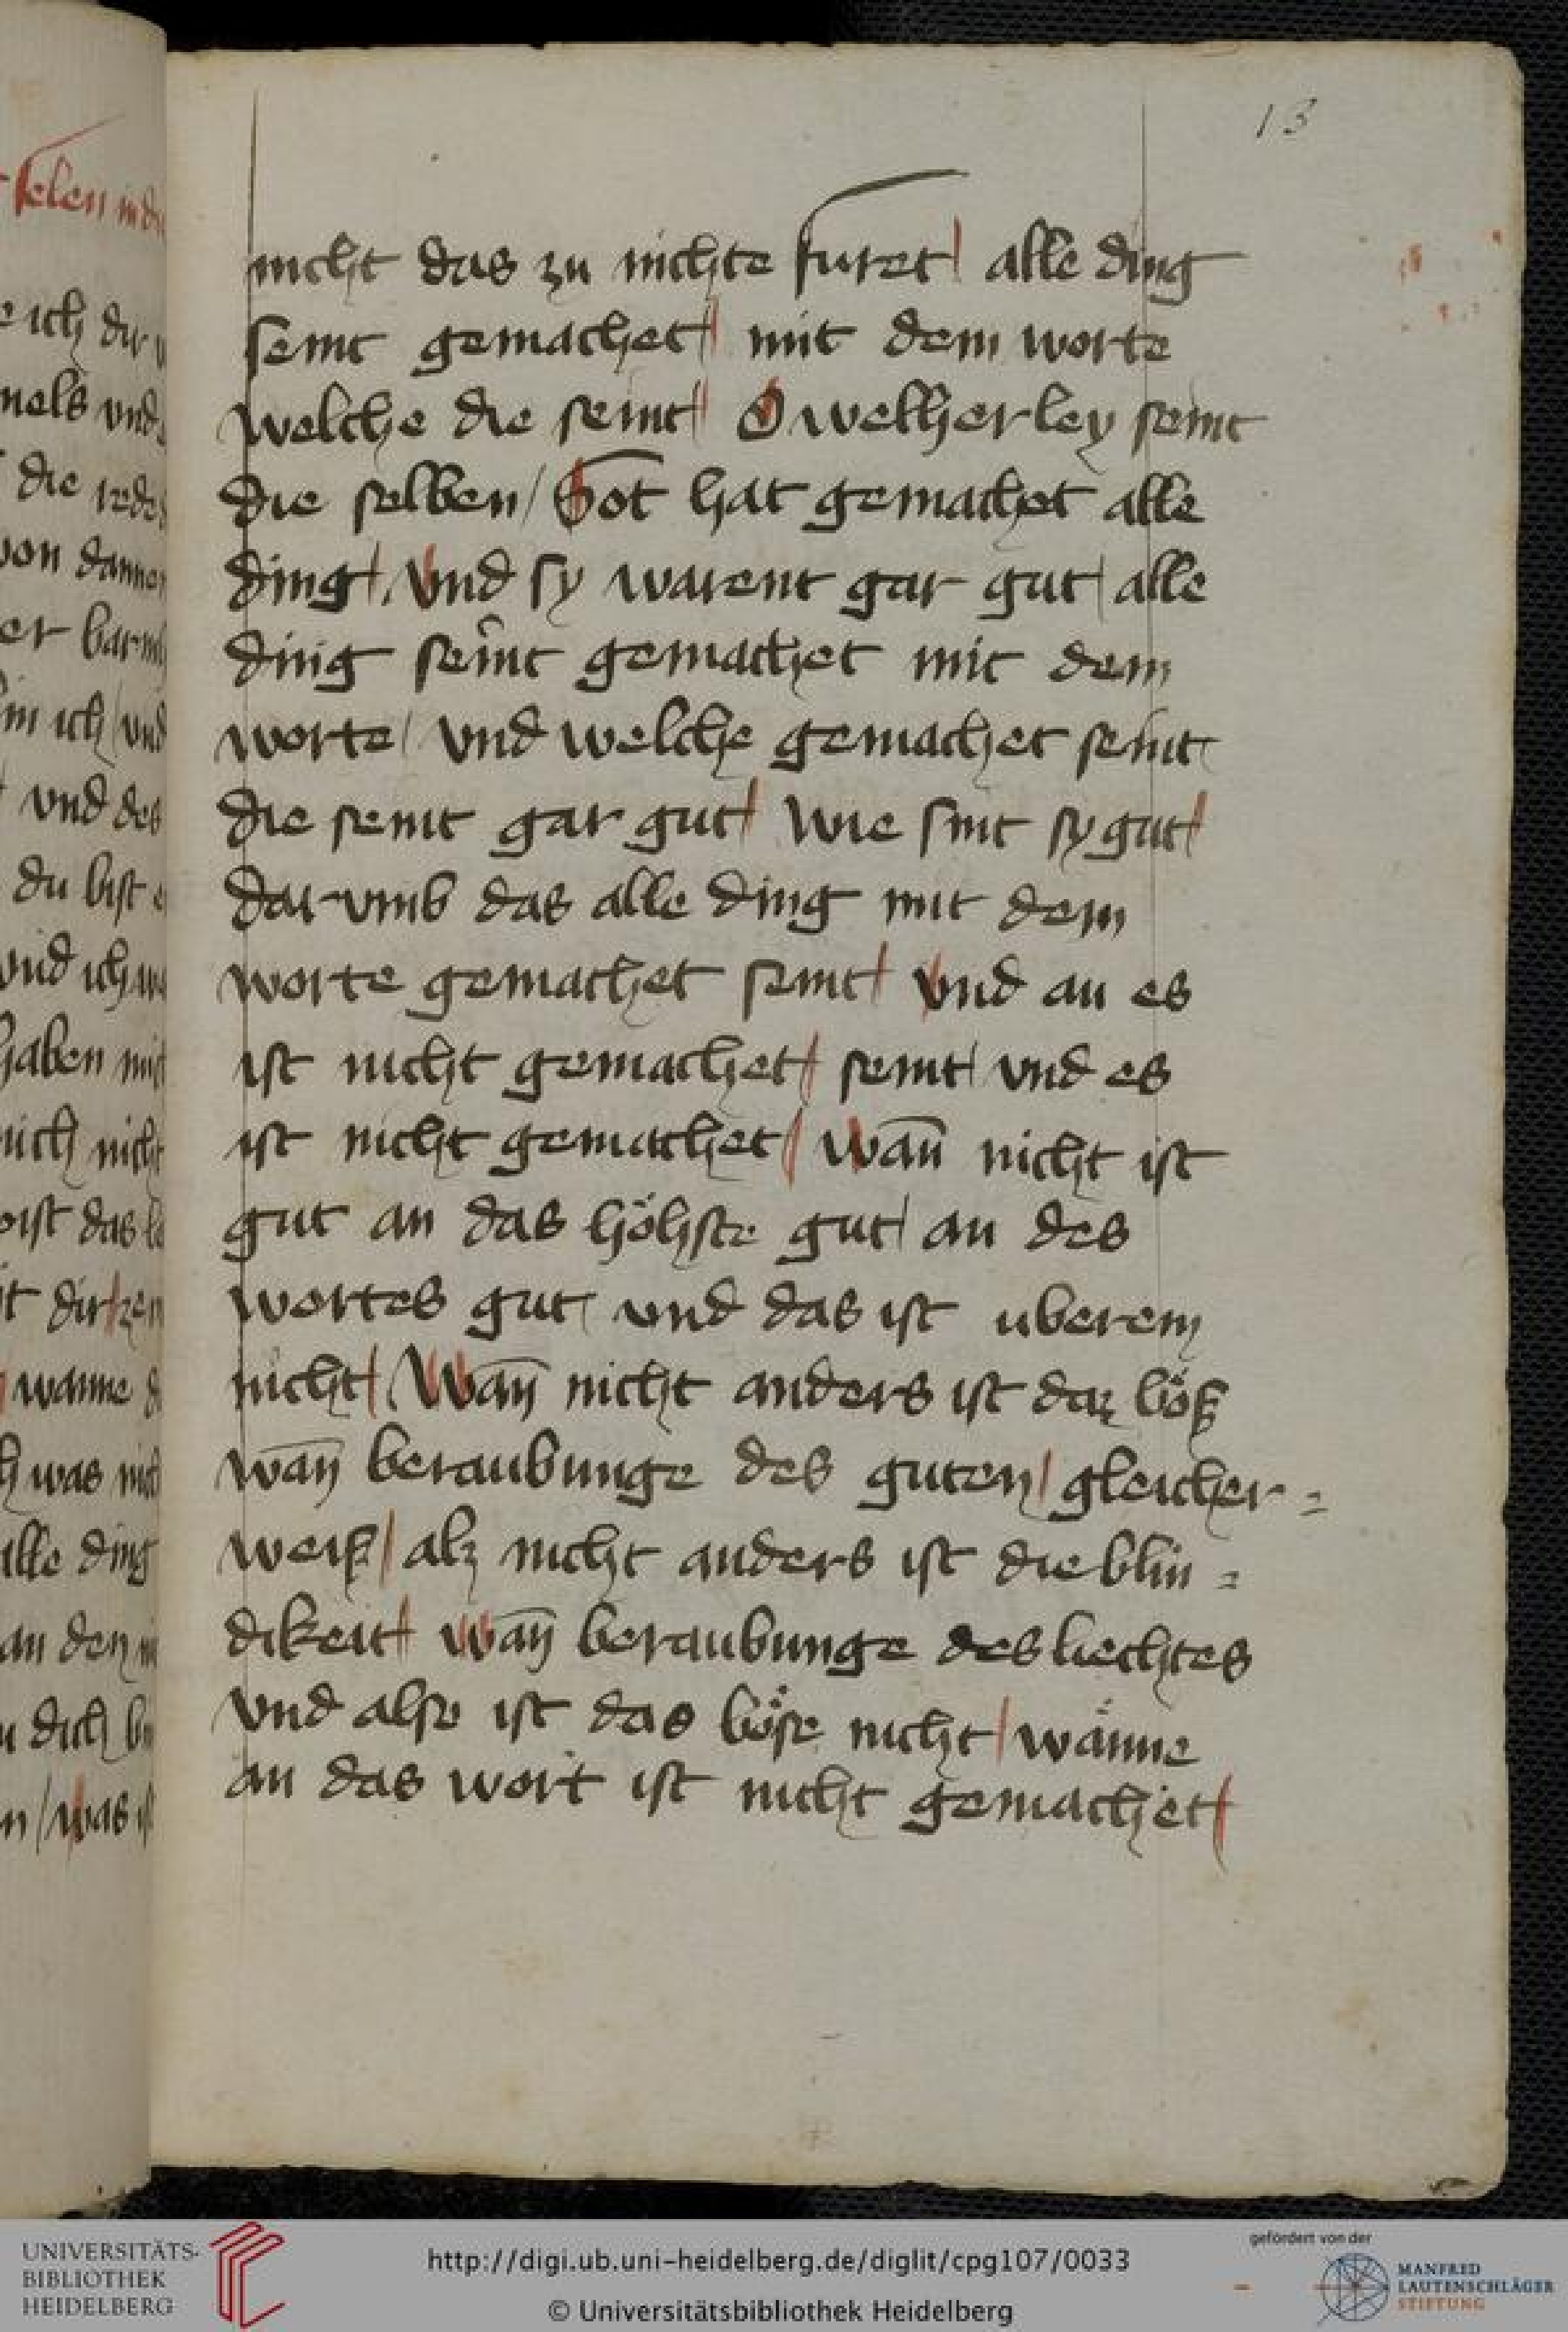 13
nicht das zu nichte furet / alle ding
seint gemachet / mit dem worte
welche die seint / O welherley seint
die selben / Got hat gemachet alle
ding / Vnd sy warent gar gut / alle
ding seint gemachet mit dem
worte / vnd welche gemachet seint
die seint gar gut / Wie sint sy gut /
dar vmb das alle ding mit dem
worte gemachet seint / vnd an es
ist nicht gemachet / seint / vnd es
ist nicht gemachet / wañ nicht ist
gut an das höhste gut / an des
wortes gut / vnd das ist uberein
nicht / Wañ nicht anders ist daz böß
wañ beraubunge des guten / gleicher=
weiß / alz nicht anders ist die blin=
dikeit / wañ beraubunge des liechtes
vnd alse ist das böse nicht / wänne
an das wort ist nicht gemachet /
selen in d
e ich dir v
mels vnd
die rede
von danne
er barmh
in ich / vnd
vnd des
du bist e
vnd ich
haben mich
mich nicht
ist das
it dir /
wanne d
h was nich
alle ding
an den
dich
n / was
UNIVERSITÄTS-
BIBLIOTHEK
HEIDELBERG
http://digi.ub.uni-heidelberg.de/diglit/cpg107/0033
© Universitätsbibliothek Heidelberg
gefördert von der
MANFRED
LAUTENSCHLÄGER
STIFTUNG